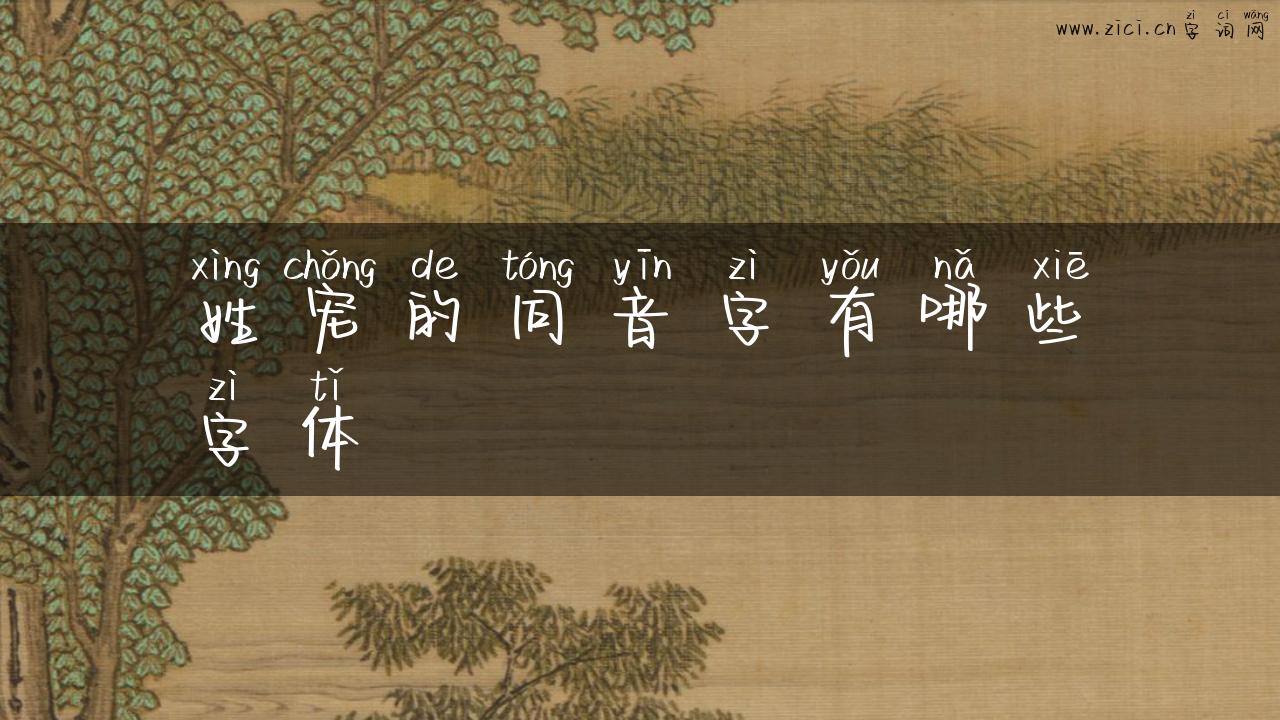 zì cí wǎng
www.zici.cn字词网
xìng chǒng de tóng yīn zì yǒu nǎ xiē
姓宠的同音字有哪些
zì tǐ
字体